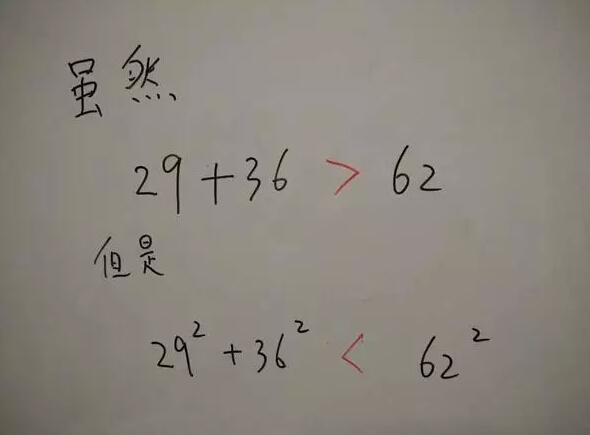 虽然
29+36 > 62
但是
29²+36² < 62²